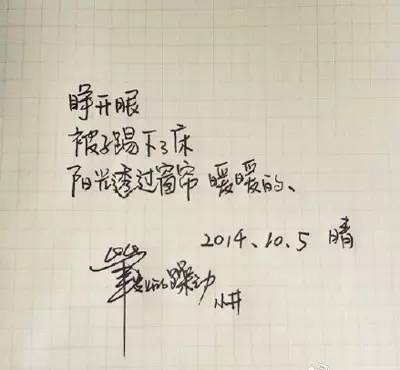 睁开眼
被子踢下了床
阳光透过窗帘 暖暖的、
2014、10、5 晴
的躁动 小井